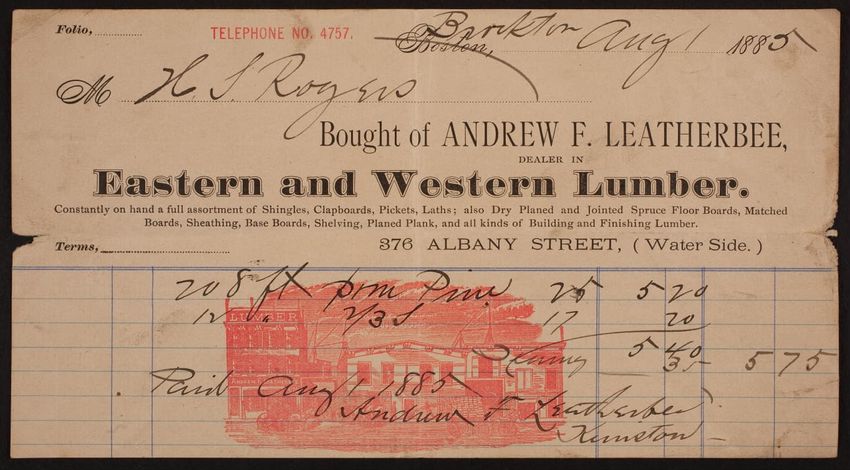 Folio, TELEPHONE NO. 4757. Boston, Brockton Aug 1 1885
M H. S. Rogers
Bought of ANDREW F. LEATHERBEE,
DEALER IN
Eastern and Western Lumber.
Constantly on hand a full assortment of Shingles, Clapboards, Pickets, Laths; also Dry Planed and Jointed Spruce Floor Boards, Matched
Boards, Sheathing, Base Boards, Shelving, Planed Plank, and all kinds of Building and Finishing Lumber.
Terms, 376 ALBANY STREET, (Water Side.)
208 ft Pine 25 5 20
12 " 2/3 S 17 20
LUMBER
5 40
35 5 75
Paid Aug 1 1885
Andrew F Leatherbee